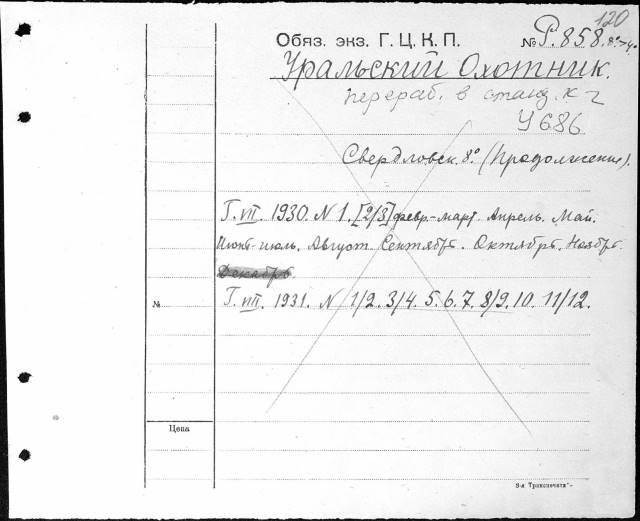 120
Обяз. экз. Г. Ц. К. П. № Р.858. 8°>4°
Уральский Охотник.
перераб. в станд. к-г
У 686
Свердловск. 8°. (Продолжение).
Г. VII. 1930. N 1. [2/3] февр.-март. Апрель. Май.
Июнь-июль. Август. Сентябрь. Октябрь. Ноябрь.
Декабрь
№ Г. VIII. 1931. N 1/2. 3/4. 5. 6. 7. 8/9. 10. 11/12.
Цена
8-я Транспечати"-